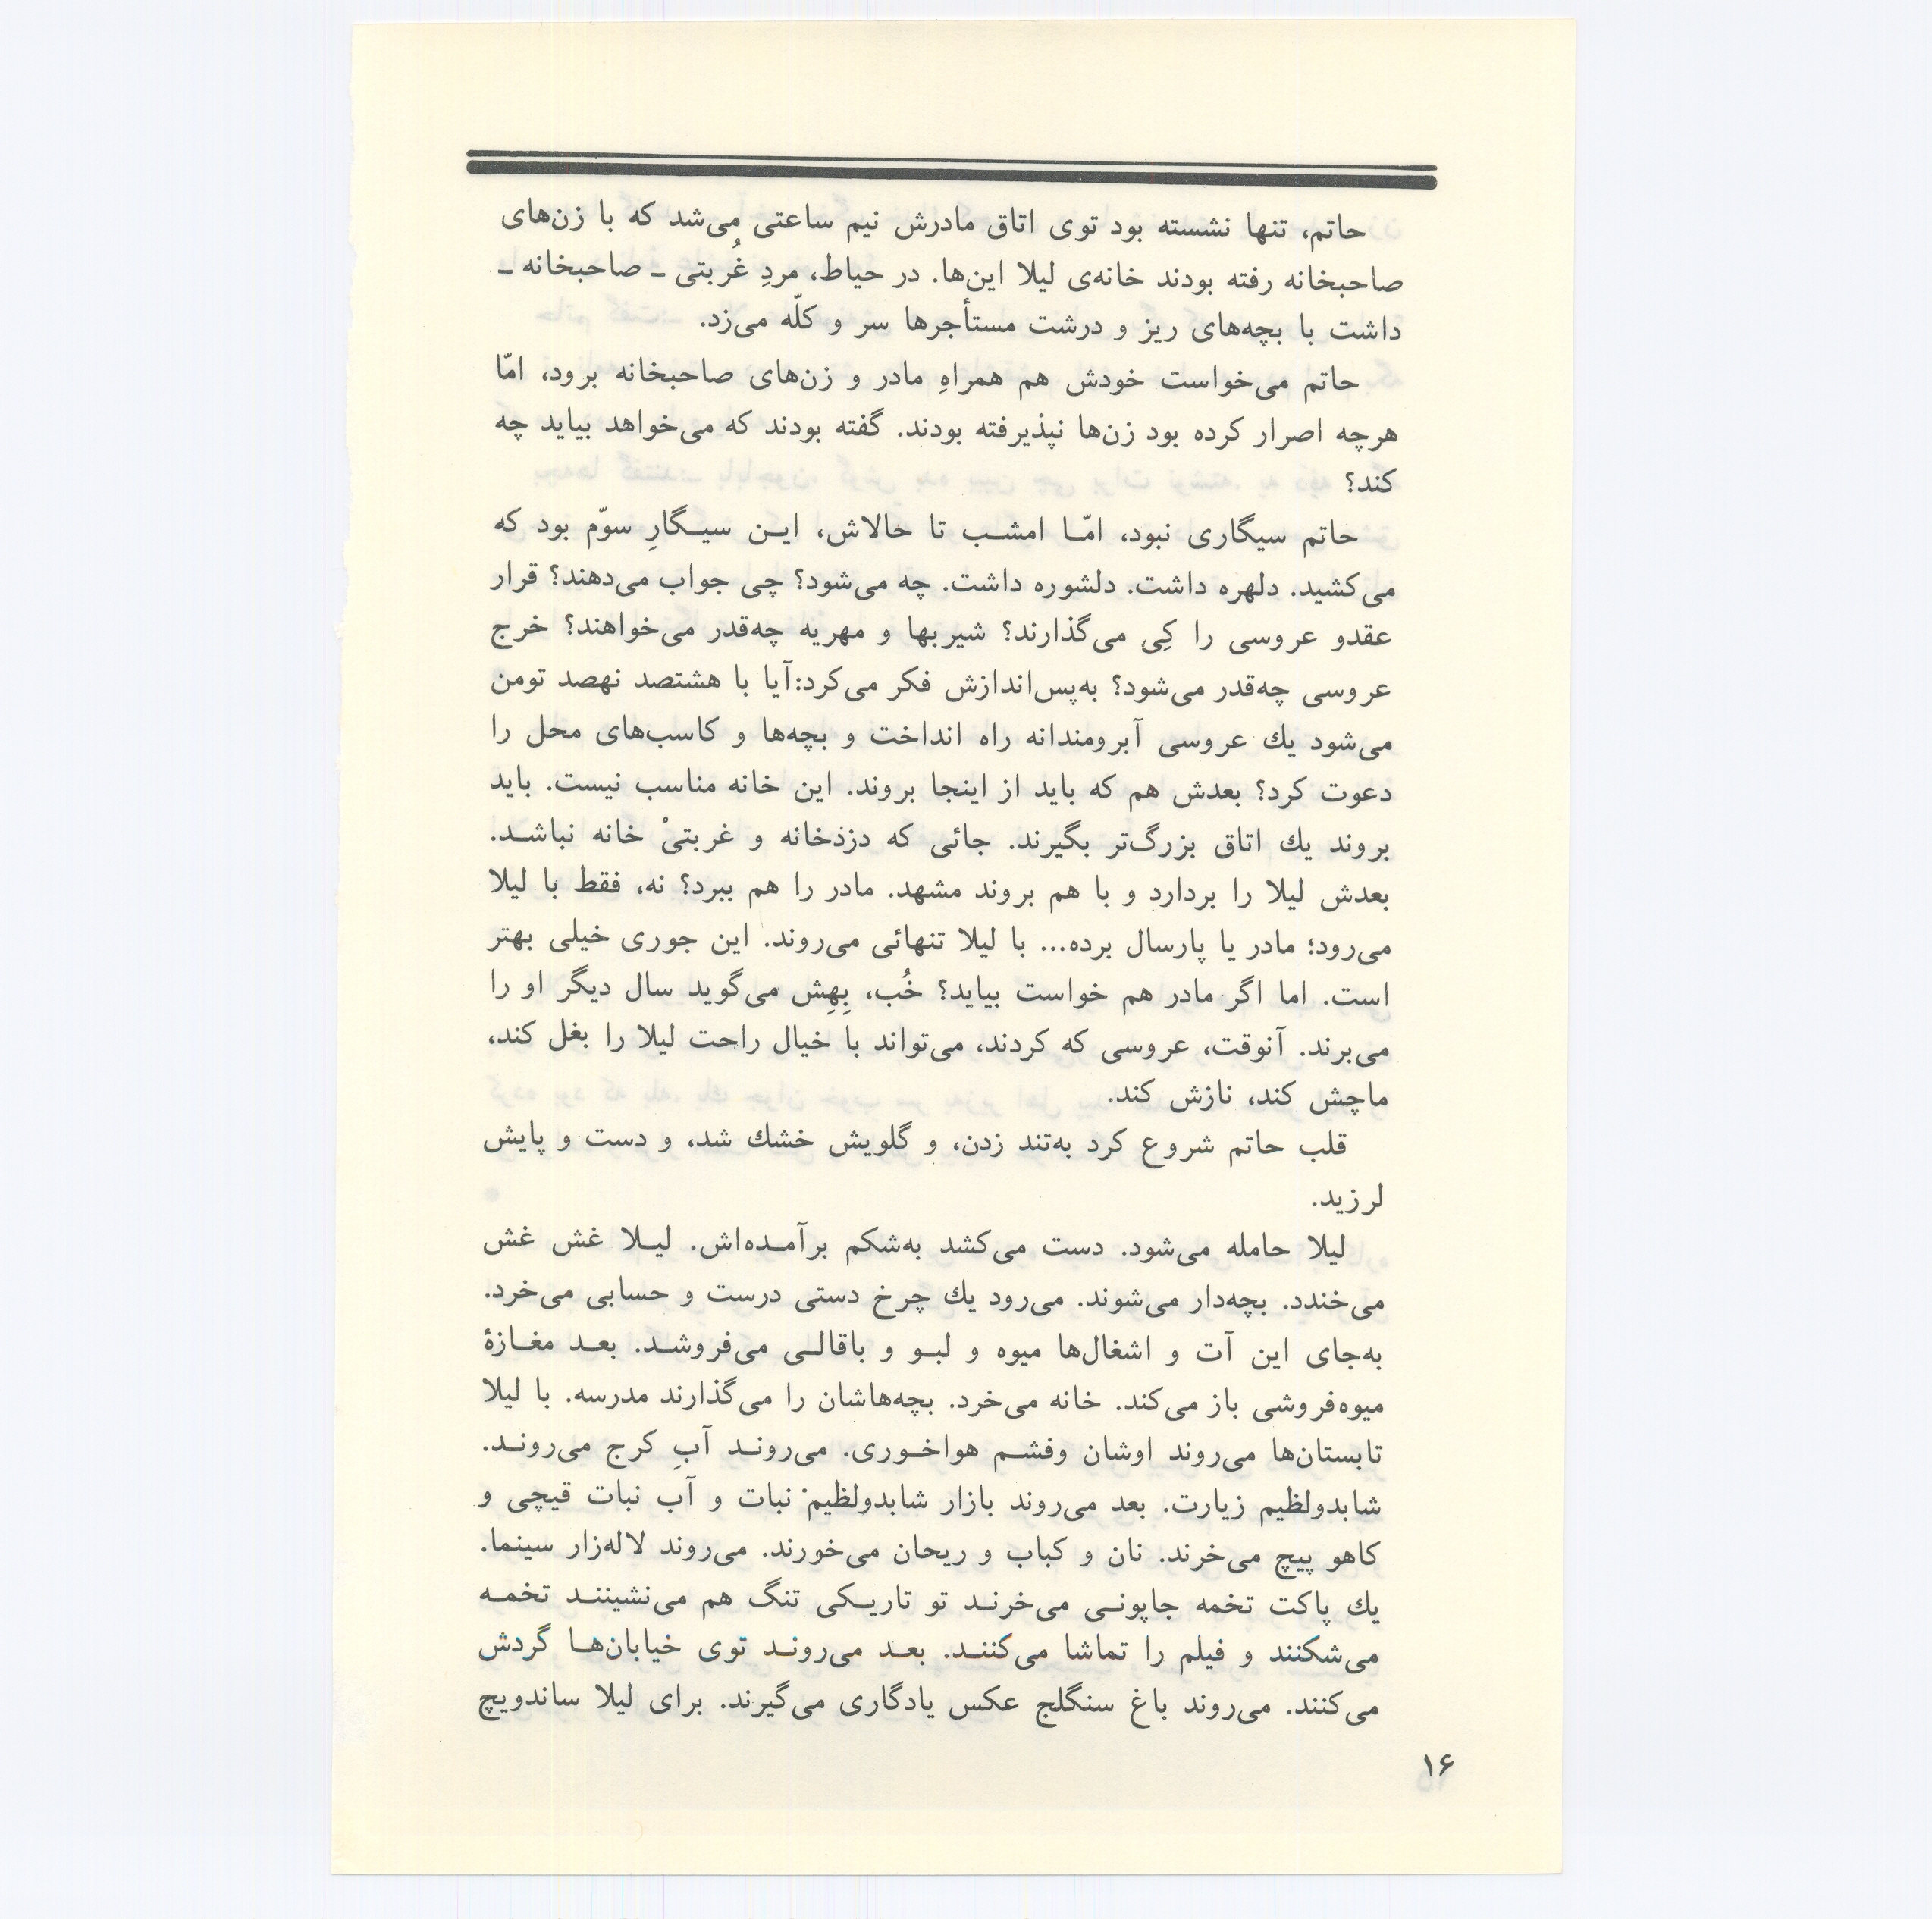 حاتم، تنها نشسته بود توی اتاق مادرش نیم ساعتی می‌شد که با زن‌های
صاحبخانه رفته بودند خانه‌ی لیلا این‌ها. در حیاط، مردِ غُربتی ـ صاحبخانه ـ
داشت با بچه‌های ریز و درشت مستأجرها سر و کلّه می‌زد.
حاتم می‌خواست خودش هم همراهِ مادر و زن‌های صاحبخانه برود، امّا
هرچه اصرار کرده بود زن‌ها نپذیرفته بودند. گفته بودند که می‌خواهد بیاید چه
کند؟
حاتم سیگاری نبود، امّا امشب تا حالاش، این سیگارِ سوّم بود که
می‌کشید. دلهره داشت. دلشوره داشت. چه می‌شود؟ چی جواب می‌دهند؟ قرار
عقدو عروسی را کِی می‌گذارند؟ شیربها و مهریه چه‌قدر می‌خواهند؟ خرج
عروسی چه‌قدر می‌شود؟ به‌پس‌اندازش فکر می‌کرد:آیا با هشتصد نهصد تومن
می‌شود یك عروسی آبرومندانه راه انداخت و بچه‌ها و کاسب‌های محل را
دعوت کرد؟ بعدش هم که باید از اینجا بروند. این خانه مناسب نیست. باید
بروند یك اتاق بزرگ‌تر بگیرند. جائی که دزدخانه و غربتیْ خانه نباشد.
بعدش لیلا را بردارد و با هم بروند مشهد. مادر را هم ببرد؟ نه، فقط با لیلا
می‌رود؛ مادر یا پارسال برده... با لیلا تنهائی می‌روند. این جوری خیلی بهتر
است. اما اگر مادر هم خواست بیاید؟ خُب، بِهِش می‌گوید سال دیگر او را
می‌برند. آنوقت، عروسی که کردند، می‌تواند با خیال راحت لیلا را بغل کند،
ماچش کند، نازش کند.
قلب حاتم شروع کرد به‌تند زدن، و گلویش خشك شد، و دست و پایش
لرزید.
لیلا حامله می‌شود. دست می‌کشد به‌شکم برآمده‌اش. لیلا غش غش
می‌خندد. بچه‌دار می‌شوند. می‌رود یك چرخ دستی درست و حسابی می‌خرد.
به‌جای این آت و اشغال‌ها میوه و لبو و باقالی می‌فروشد. بعد مغازهٔ
میوه‌فروشی باز می‌کند. خانه می‌خرد. بچه‌هاشان را می‌گذارند مدرسه. با لیلا
تابستان‌ها می‌روند اوشان وفشم هواخوری. می‌روند آبِ کرج می‌روند.
شابدولظیم زیارت. بعد می‌روند بازار شابدولظیم نبات و آب نبات قیچی و
کاهو پیچ می‌خرند. نان و کباب و ریحان می‌خورند. می‌روند لاله‌زار سینما.
یك پاکت تخمه جاپونی می‌خرند تو تاریکی تنگ هم می‌نشینند تخمه
می‌شکنند و فیلم را تماشا می‌کنند. بعد می‌روند توی خیابان‌ها گردش
می‌کنند. می‌روند باغ سنگلج عکس یادگاری می‌گیرند. برای لیلا ساندویچ
۱۶